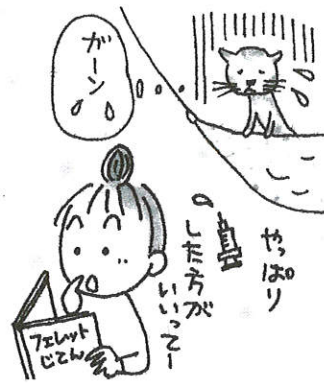 ガーン
やっぱり
した方が
いいってー
フェレット
じてん